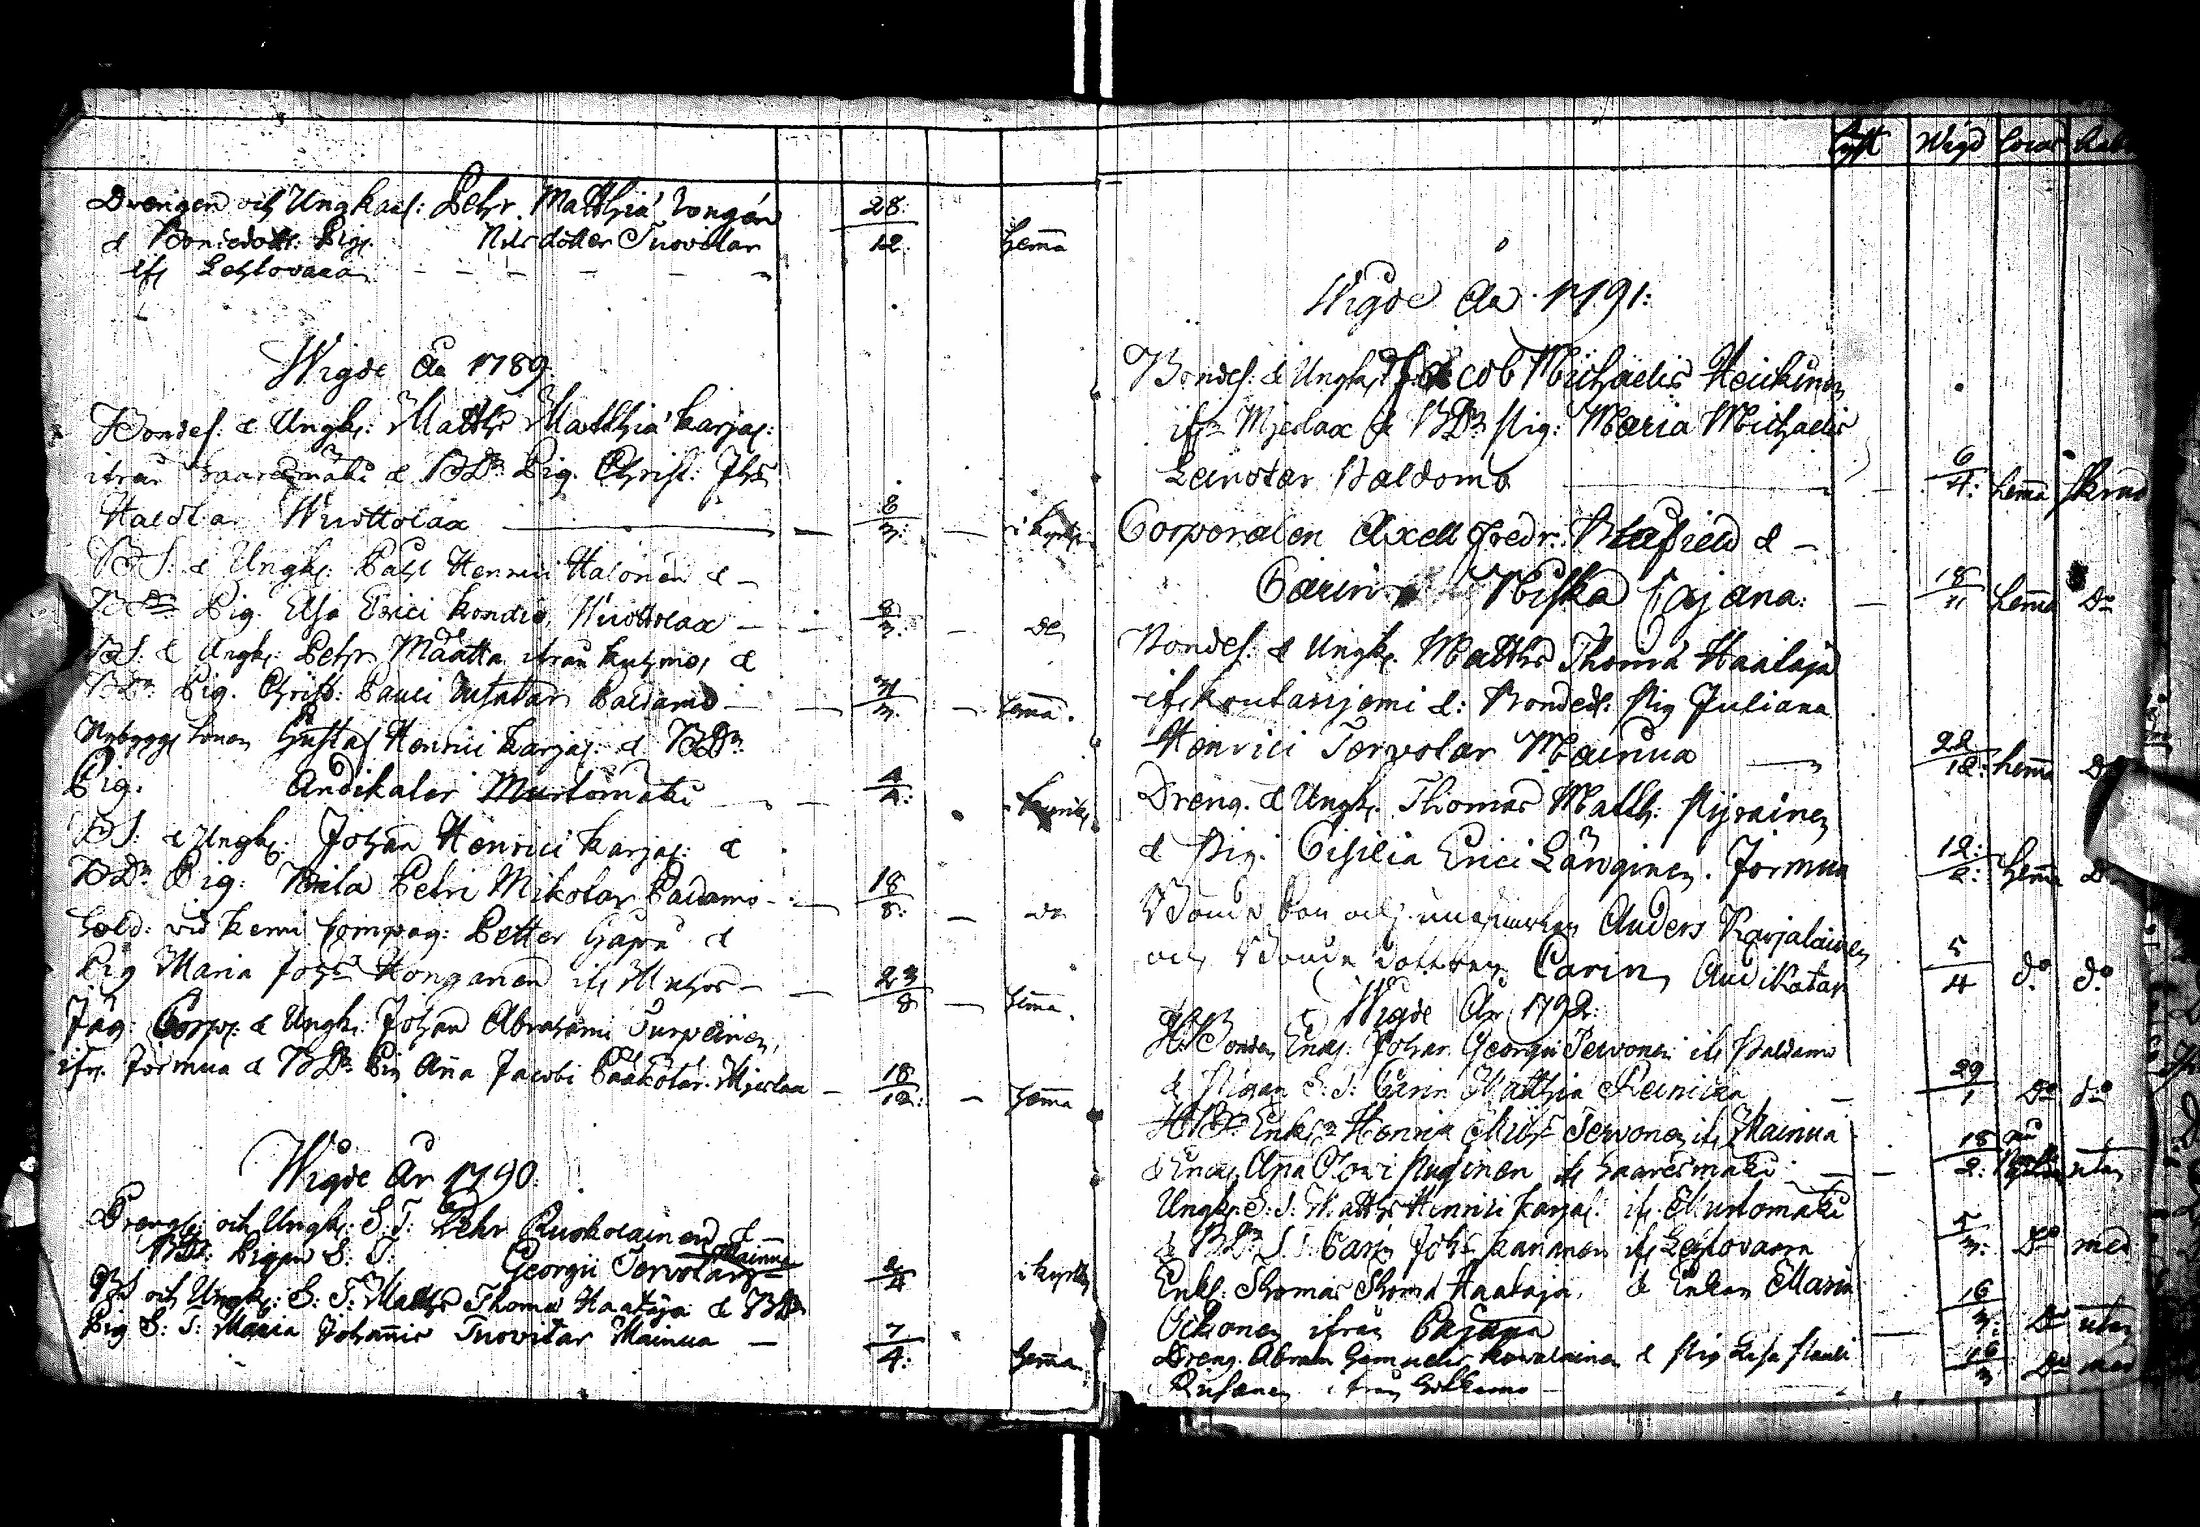 Drengen och Ungkarl: Pehr Matthiæ
28
& Bondedottr: Pig. Nils dotter Tuovitar
12 hemma
ifr Lehtovara
Wigde Åå 1789
Bondes: & Ungk: Matths Matthiæ Karjal:
ifrån Saaresmäki & BDr Pig. Christ: Johs
Haldtar Wuottolax
8
3: i kyrkan
BS: & Ungk: Påhl Henrici Halonen &
BDr Pig. Elsa Erici Kondio, Wuottolax
8
3: do
BS: & Ungk: Pehr Määtta ifrån Kuhmo, &
BDr Pig. Christ: Pauli Paldamo
31
3: hemma.
Nybygg sonen Gustaf Henrici Karjal: & BDr
Pig. Andikaler Murtomäki
4
4:
BS: & Ungk: Johan Henrici Karjal: &
BDr Pig: Beila Petri Mikotar Paldamo
18
8: do
Sold: vid Kemi Compag: Petter &
Pig Maria Johs Honganen ifr Muhos
23
8 hemma.
Jäg: Corp: & Ungk: Johan Abrahami Turpeinen,
ifr. Jormua & BDr Pig Anna Jacobi Pääkötar. Mjeslax
18
12: hemma
Wigde År 1790:
Drengen och Ungk: S: T: Pehr Ruokolainen &
BDr: Pigan S: T: Georgii Tervotar Mainua
2
4 i kyrkan
BS och Ungk: S: T: Matths Thomæ Haataja & BDr
Pig S: T: Maria Johannis Tuovitar Mainua
7
4: hemma
Lyst Wigd
Wigde Åå 1791:
Bondes: & Ungk: Jacob Michaelis Heickinen
ifrn Mjeslax & BDr Pig: Maria Michaelis
Leinotar Paldamo
6
4: hemma
Corporalen Axell Fredr: &
Carin Niska Cajana:
18
11 hemma Do
Bondes: & Ungk. Matths Thomæ Haataja
ifr Koutanjemi &: Bonded: Pig Juliana
Henrici Tervotar Mainua
22
12: hemma Do
Dreng. & Ungk. Thomas Matth: Pyrainen
& Pig. Cisilia Erici Länginen. Jormua
12:
2: hemma Do
Bonde son och ungkarlen Anders Karjalainen
och Bonde dottren Carin Audikatar
5
4 do do
Wigde År 1792:
H Bonden Enkl: Johan Georgii Tervonen ifr Paldamo
& Pigan S: T: Carin Matthiæ Reinikka
29
1 Do do
HBr Enkln Henric Tervonen ifr Mainua
& Enk Anna Olovi ifr Saaresmäki
18
2: utan
Ungk. S: T: Matths Henrici Karjal: ifr Murtomäki
& BDr S: T: Carin Johs Kananen ifr Lehtovaara
5
3: Do med
Enkl: Thomas Thomæ Haataja, & Enkan Maria
Ockonen ifrån Cajana
16
3: Do utan
Dreng. Abram Samuelis Kovalainen & Pig Lisa Pauli
Rusanen ifrån Sotkamo
18
3 Do med